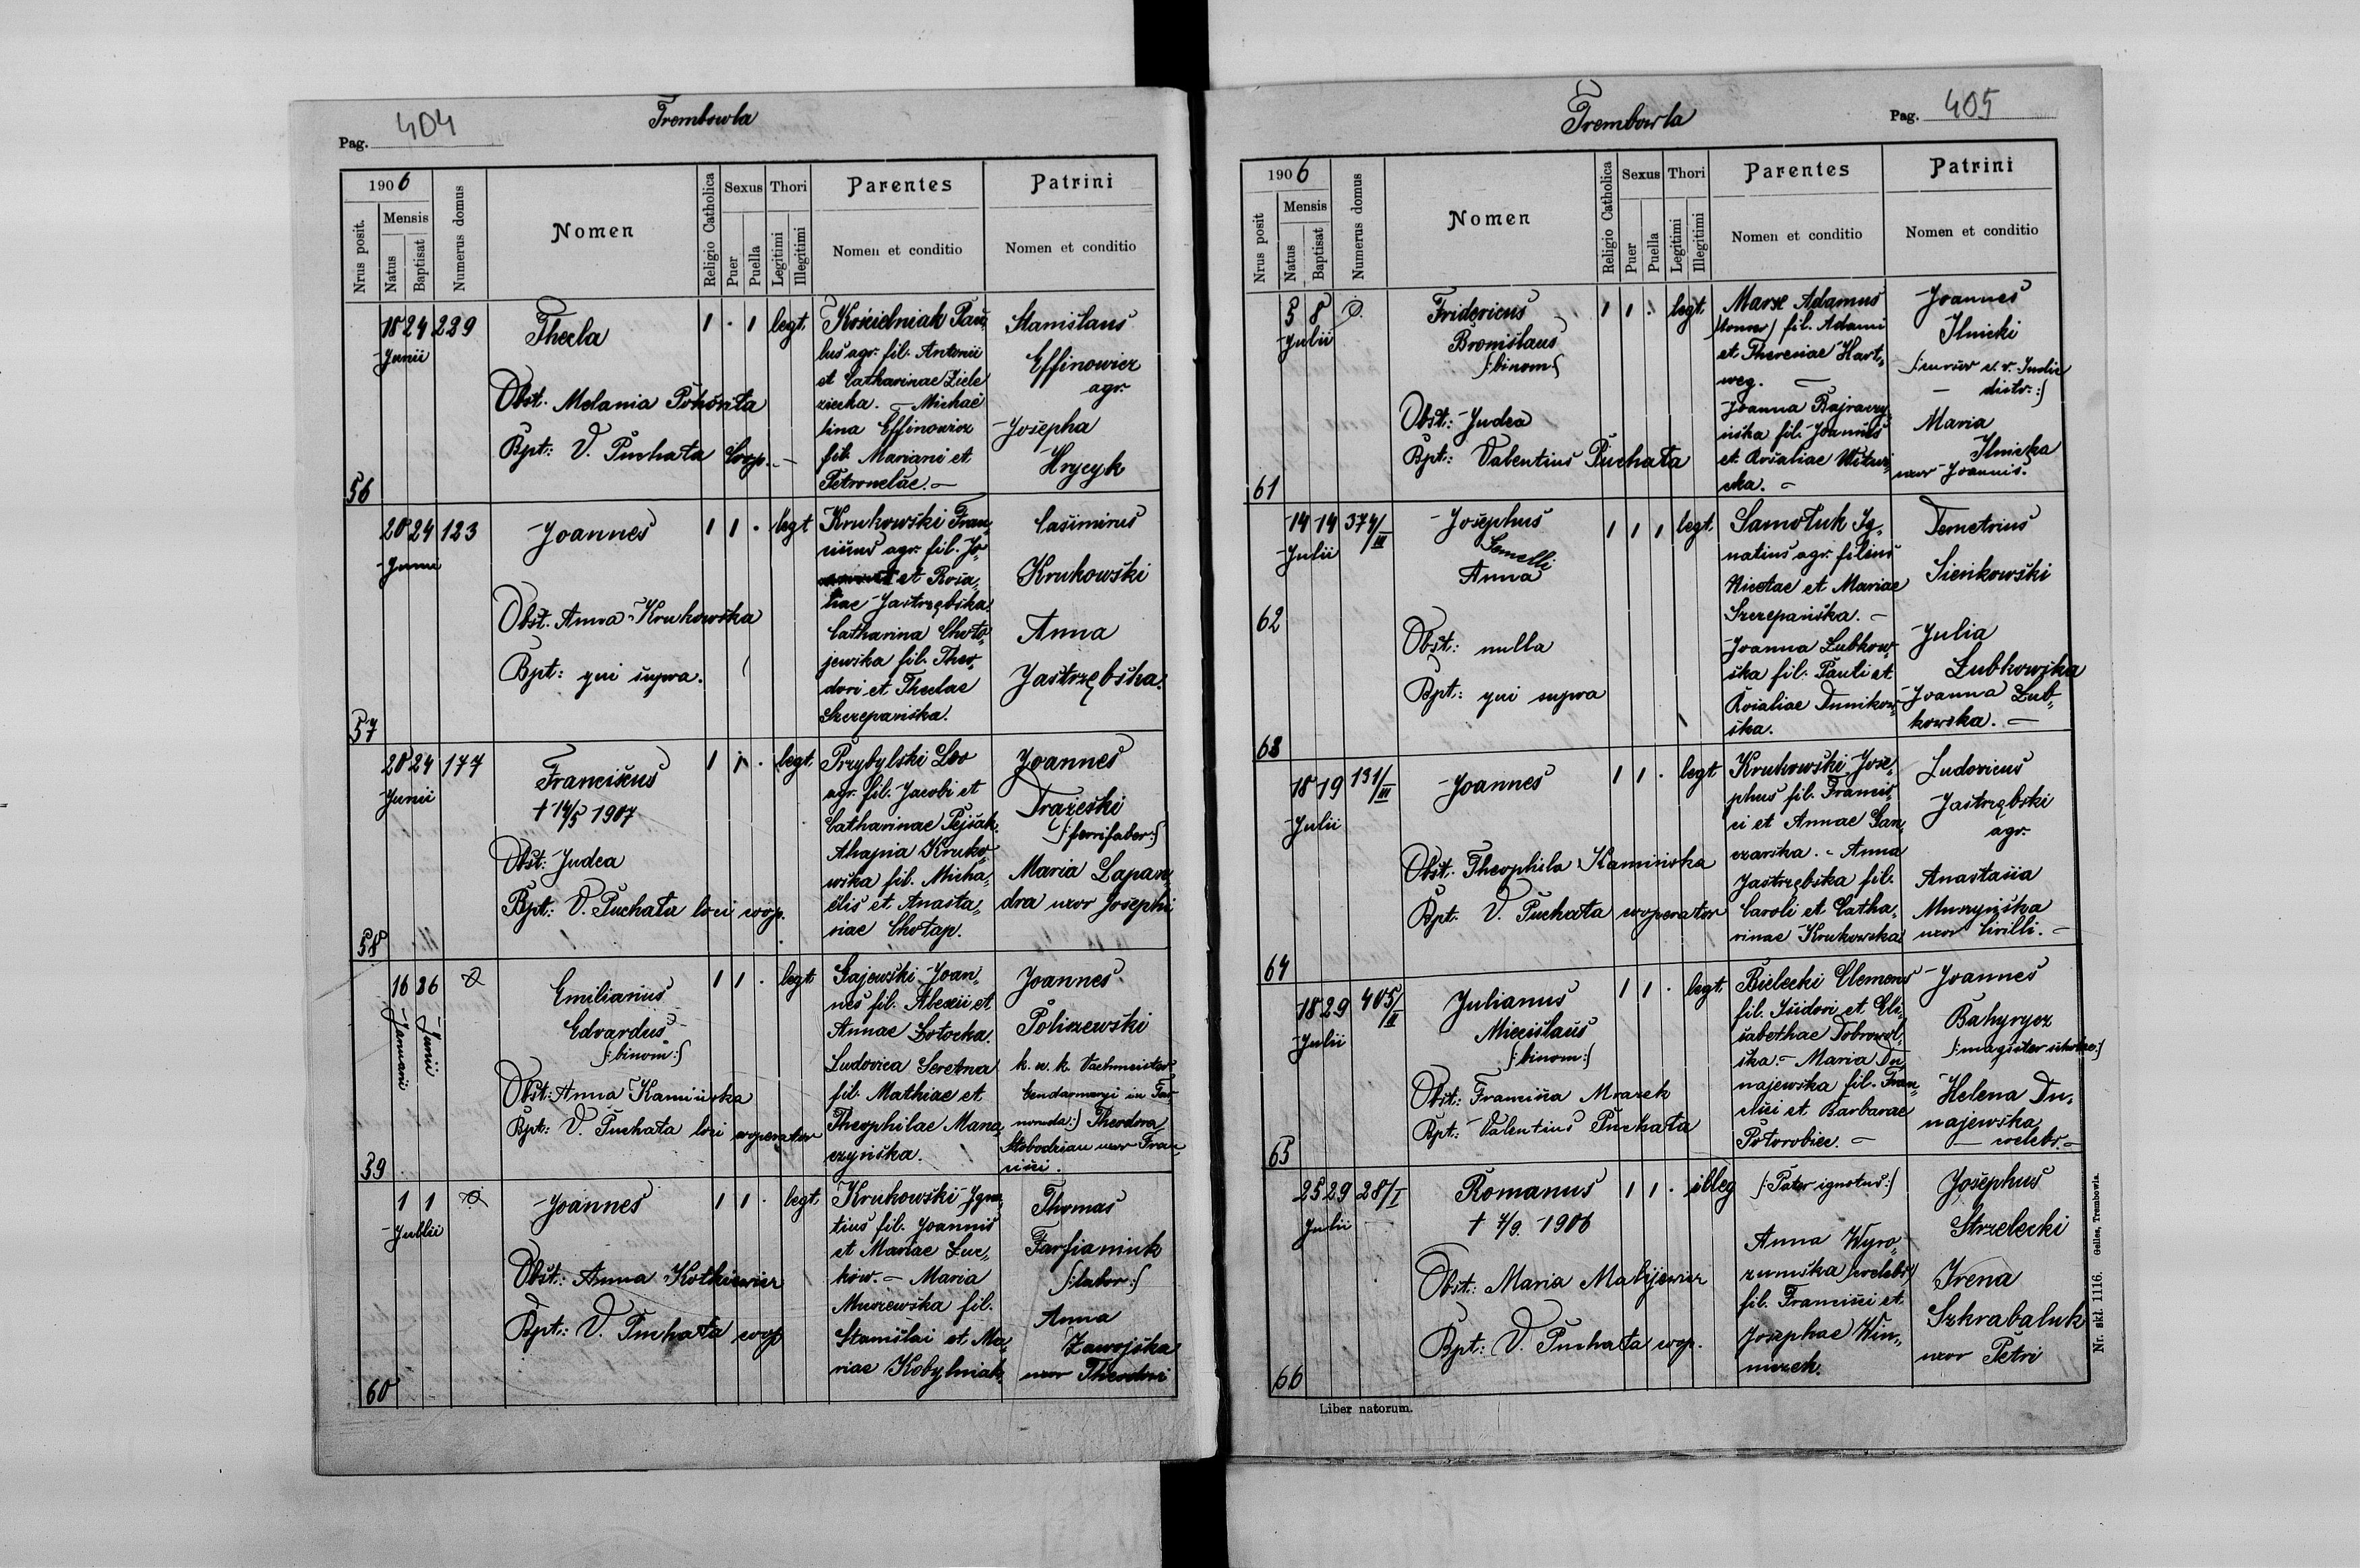 Pag. 404
Trembowla
1906
Nrus posit.
Mensis
Natus
Baptisat
Numerus domus
Nomen
Religio Catholica
Sexus
Puer
Puella
Thori
Legitimi
Illegitimi
Parentes
Nomen et conditio
Patrini
Nomen et conditio
56
18 24 229
Junii
Thecla
Obst. Melania Pohorita
Bpt: V. Puchata Coop.
1 . 1 legt.
Kościelniak Pau„
lus agr. fil. Antonii
et Catharinae Ziele
ziecka. — Michae
lina Effinowicz
fil. Mariani et
Petronelae. —
Stanislaus
Effinowicz
agr.
Josepha
Hrycyk
57
20 24 123
Junii
Joannes
Obst. Anna Krukowska
Bpt: qui supra.
1 1 . legt
Krukowski Fran„
ciscus agr. fil. Jo„
et Rosa„
liae Jastrzębska.
Catharina Choto„
jewska fil. Theo„
dori et Theclae
Szczepańska.
Casimirus
Krukowski
Anna
Jastrzębska.
58
20 24 177
Junii
Franciscus
† 14/5 1907
Obst: Judea
Bpt: V. Puchata loci coop.
1 1 . legt.
Przybylski Leo
agr. fil. Jacobi et
Catharinae Pejsak.
Ahapia Kruko„
wska fil. Micha„
elis et Anasta„
siae Chotap.
Joannes
Drażeski
/:ferrifaber:/
Maria Lapan„
dra uxor Josephi
59
16 26
Januarii Junii
Emilianus
Edvardus
/:binom:/
Obst: Anna Kamińska
Bpt: V. Puchata loci cooperator
1 1 . legt
Gajewski Joan„
nes fil. Alexii et
Annae Lotocka.
Ludovica Seretna
fil. Mathiae et
Theophilae Mana„
czyńska.
Joannes
Poliszewski
k. u. k. Vachmeister
Gendarmerji in Tar„
noruda:/ Theodora
Słobodzian uxor Fran„
cisci.
60
1 1
Jullii
Joannes
Obst: Anna Kotkiewicz
Bpt: V. Puchata coop
1 1 . legt.
Krukowski Igna„
tius fil. Joannis
et Mariae Luc„
ków. — Maria
Murzewska fil.
Stanislai et Ma„
riae Kobylniak.
Thomas
Farfianiuk
/:labor:/
Anna
Zawojska
uxor Theodori
Trembowla
Pag. 405
1906
Nrus posit
Mensis
Natus
Baptisat
Numerus domus
Nomen
Religio Catholica
Sexus
Puer
Puella
Thori
Legitimi
Illegitimi
Parentes
Nomen et conditio
Patrini
Nomen et conditio
61
5 8
Julii
Fridericus
Bronislaus
/:binom:/
Obst: Judea
Bpt: Valentius Puchata
1 1 . legt.
Marx Adamus
fil. Adami
et Theresiae Hart„
weg. —
Joanna Bajraczy„
ńska fil. Joannis
et Rosaliae Witwi„
cka. —
Joannes
Ilnicki
distr.:/
Maria
Ilnicka
uxor Joannis.
62
63
14 14 374/III
Julii
Josephus
Gemelli
Anna
Obst: nulla
Bpt: qui supra
1 1 1 legt.
Samoluk Ig„
natius agr. filius
Nicetae et Mariae
Szczepańska. —
Joanna Lubkow„
ska fil. Pauli et
Rosaliae Dunikow„
ska.
Demetrius
Sieńkowski
Julia
Lubkowska
Joanna Lub„
kowska. —
64
18 19 131/III
Julii
Joannes
Obst: Theophila Kamińska
Bpt. V. Puchata cooperator
1 1 . legt
Krukowski Jose„
phus fil. Francis„
ci et Annae Gan„
czarska. — Anna
Jastrzębska fil.
Caroli et Catha„
rinae Krukowska.
Ludovicus
Jastrzębski
agr.
Anastasia
Murzyńska
uxor Cirilli. —
65
18 29 405/II
Julii
Julianus
Miecislaus
/:binom:/
Obst: Francisca Mrazek
Bpt: Valentius Puchata
1 1 . legt.
Bielecki Clemens
fil. Isidori et Eli„
sabethae Dobrowol„
ska. — Maria Du„
najewska fil. Fran„
cisci et Barbarae
Potorobiec. —
Joannes
Bahyrycz
/:magister scholae:/
Helena Du„
najewska
— coelebs. —
66
25 29 28/I
Julii
Romanus
† 7/9. 1906
Obst: Maria Matijewicz
Bpt: V. Puchata coop.
1 1 . illeg
/:Pater ignotus:/
Anna Wyro„
zumska /coelebs/
fil. Francisci et
Josephae Win„
niczek.
Josephus
Strzelecki
Irena
Szkrabaluk
uxor Petri
Liber natorum.
Nr. skł. 1116. Gelles, Trembowla.